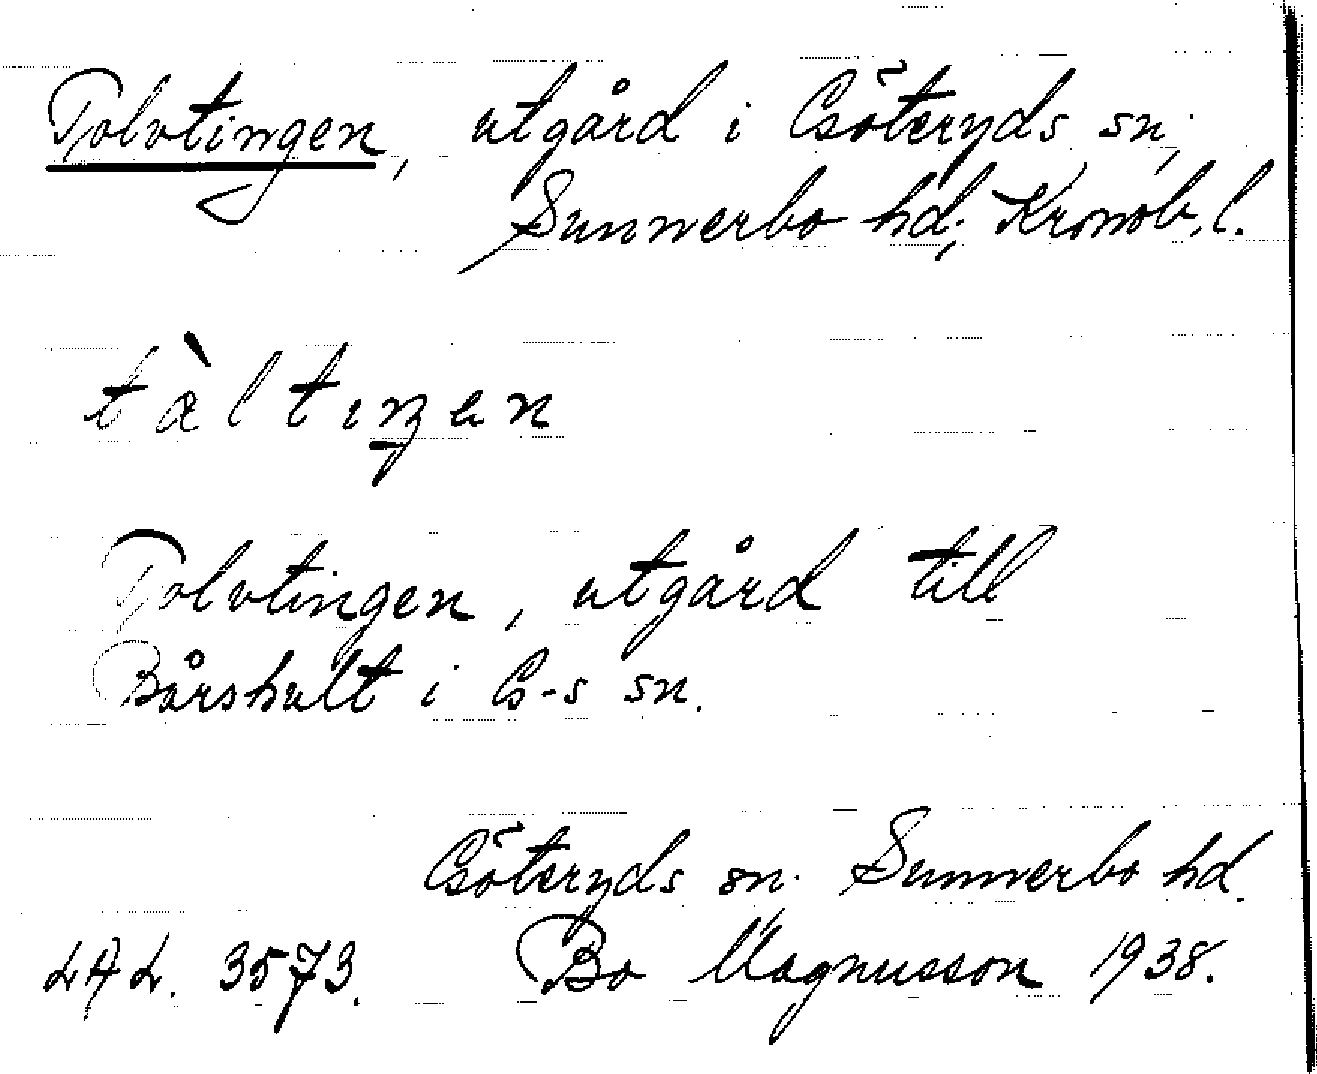 Tolvtingen, utgård i Götteryds sn,
Sunnerbo hd, Kronob. l.
tæ̀ltıŋen
Tolvtingen, utgård till
Bårshult i G-s sn.
Göteryds sn. Sunnerbo hd.
LAL. 3573. Bo Magnusson 1938.